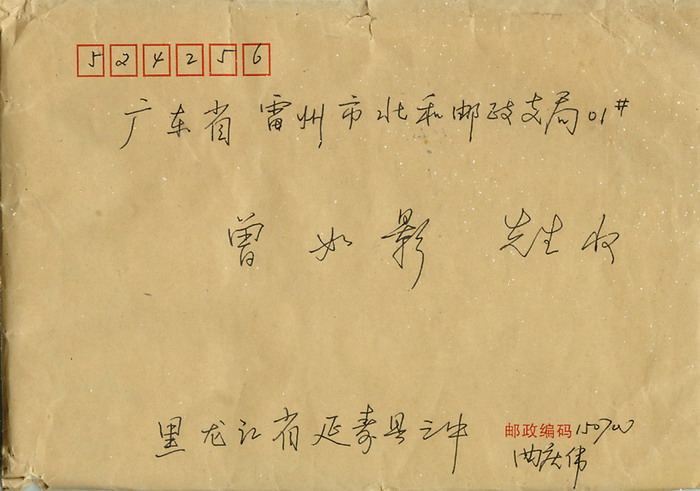 524256
广东省雷州市北和邮政支局01#
曾如影 先生收
黑龙江省延寿县三中
邮政编码 150700
曲庆伟